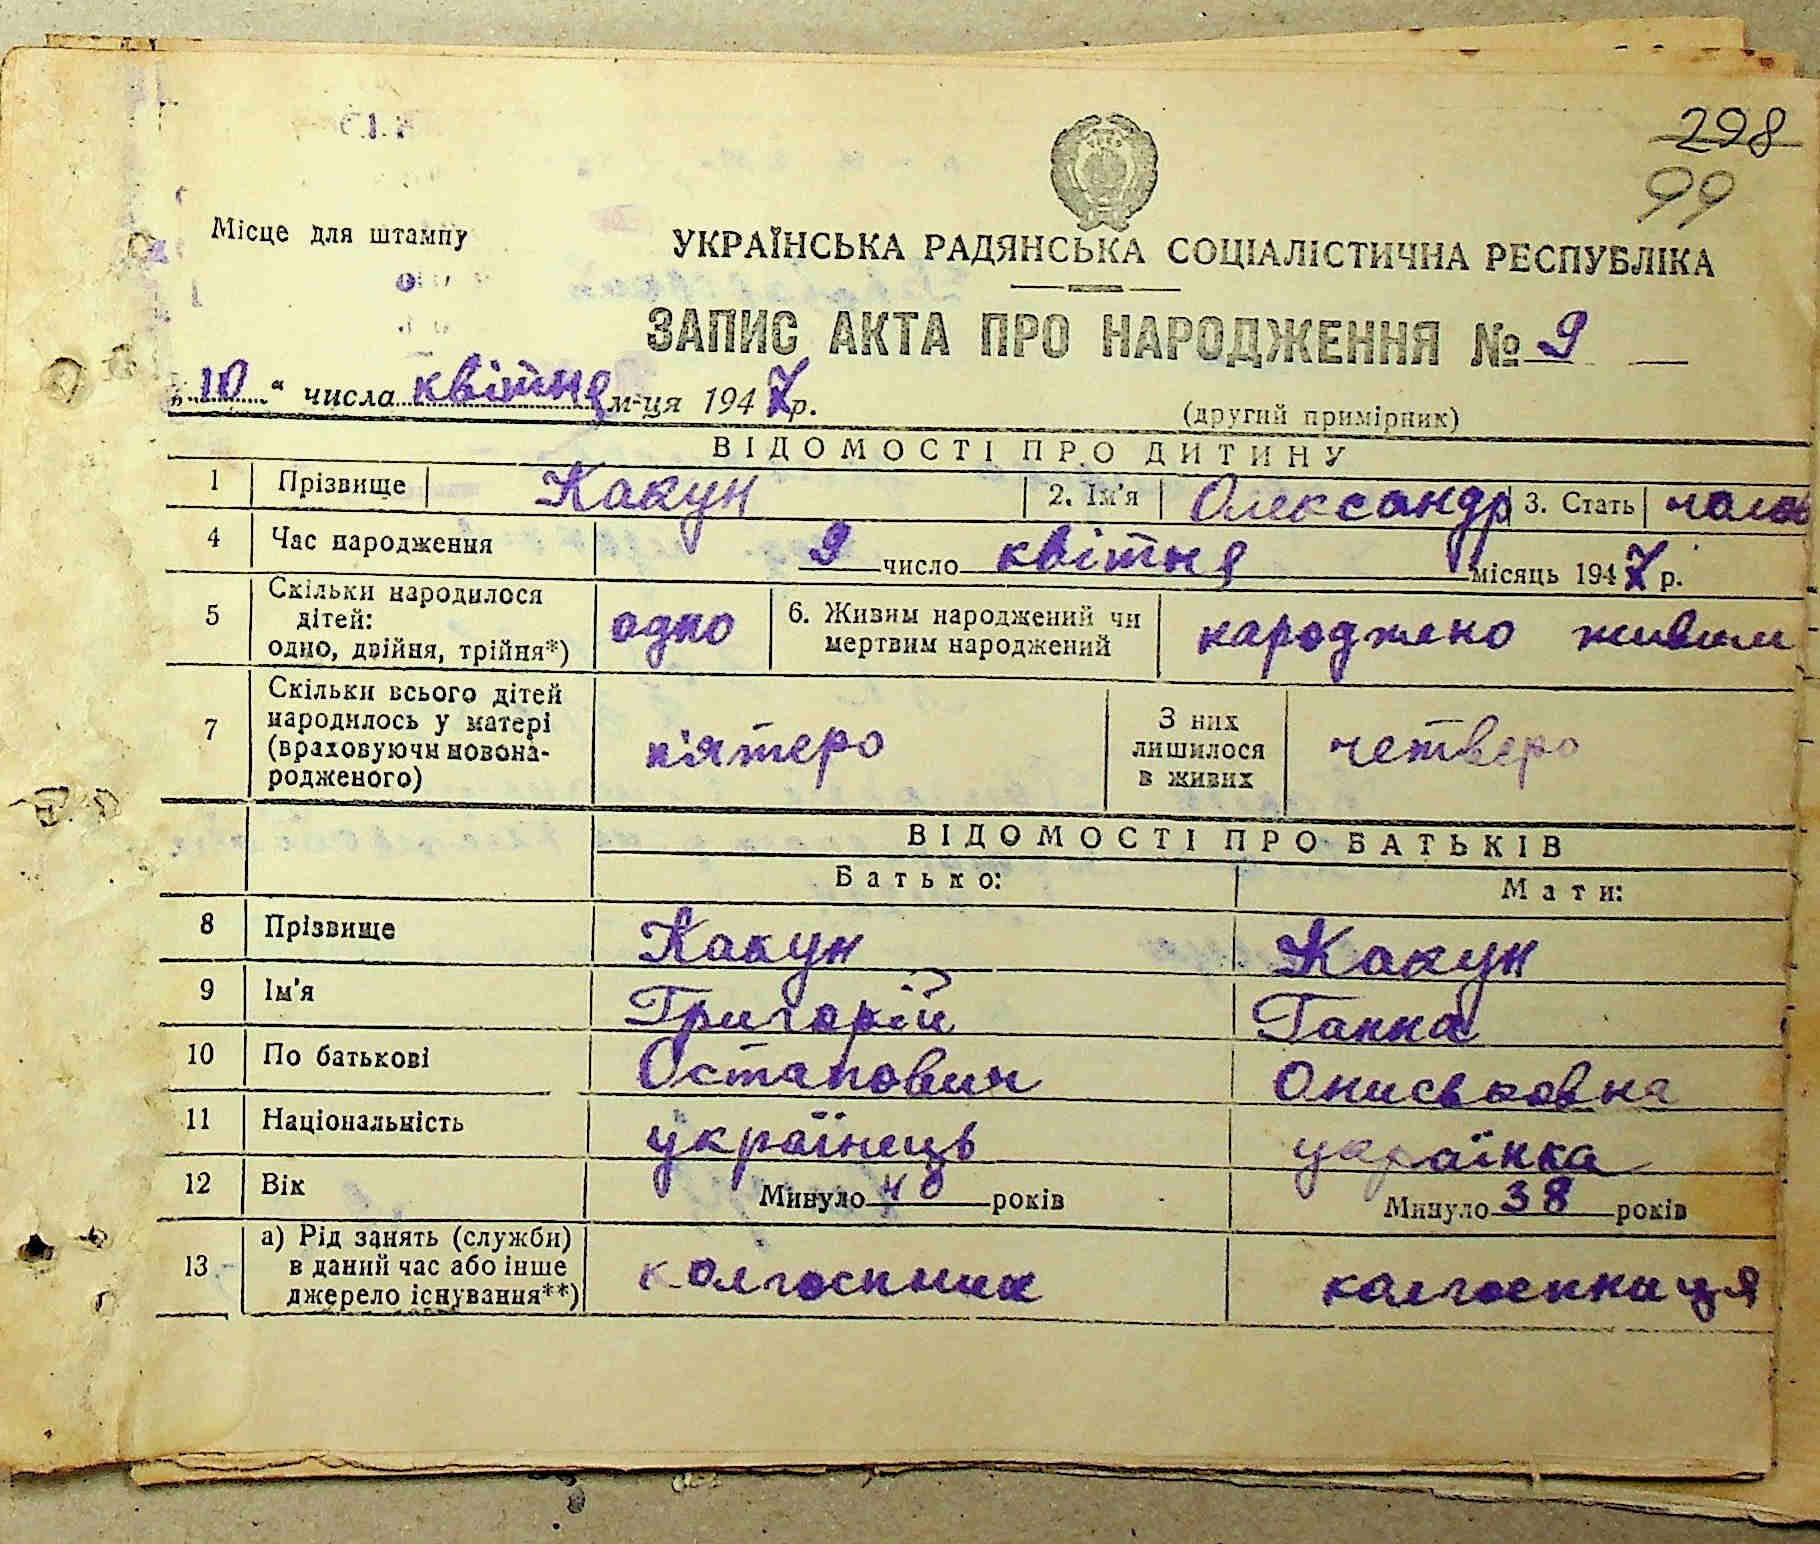 298
99
Місце для штампу
УКРАЇНСЬКА РАДЯНСЬКА СОЦІАЛІСТИЧНА РЕСПУБЛІКА
ЗАПИС АКТА ПРО НАРОДЖЕННЯ № 9
„10“ числа квітня м-ця 1947 р.
(другий примірник)
ВІДОМОСТІ ПРО ДИТИНУ
1 Прізвище Какун 2. Ім'я Олександр 3. Стать чолов
4 Час народження 9 число квітня місяць 1947 р.
5 Скільки народилося дітей: одно, двійня, трійня*) одно 6. Живим народжений чи мертвим народжений народжено живим
7 Скільки всього дітей народилось у матері (враховуючи новонародженого) п'ятеро З них лишилося в живих четверо
ВІДОМОСТІ ПРО БАТЬКІВ
Батько: Мати:
8 Прізвище Какун Какун
9 Ім'я Григорій Ганна
10 По батькові Остапович Ониськовна
11 Національність українець українка
12 Вік Минуло 40 років Минуло 38 років
13 а) Рід занять (служби) в даний час або інше джерело існування**) колгоспник колгоспниця